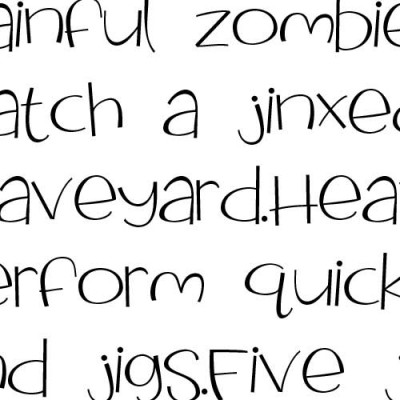 ainful zombie
atch a jinxed
aveyard.Hea
erform quick
nd jigs.Five j